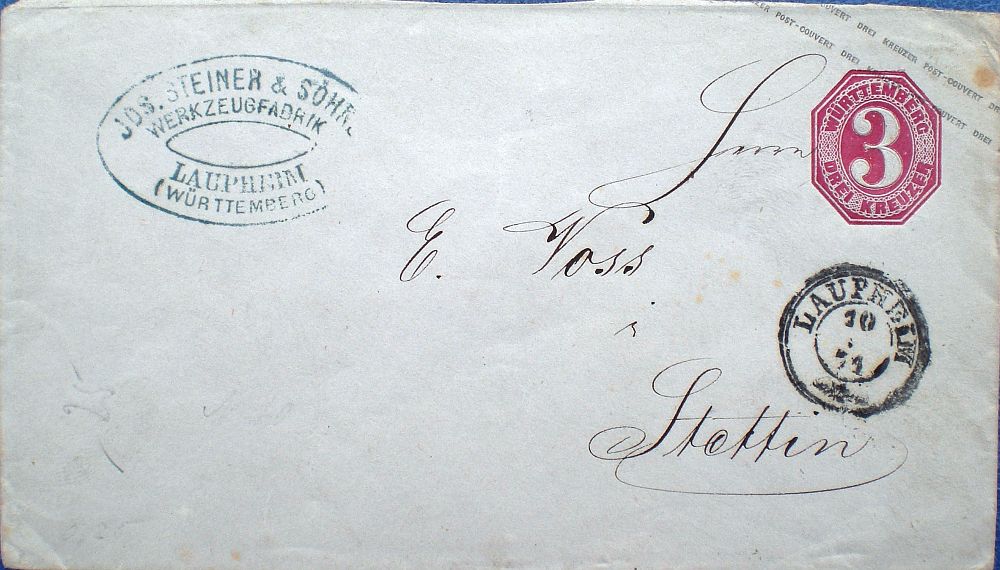 JOS. STEINER & SÖHNE
WERKZEUGFABRIK
LAUPHEIM
(WÜRTTEMBERG)
DREI KREUZER POST-COUVERT DREI KREUZER POST-COUVERT DREI
POST-COUVERT DREI
WÜRTTEMBERG
3
DREI KREUZER
Herrn
E. Voss
Stettin
LAUPHEIM
10